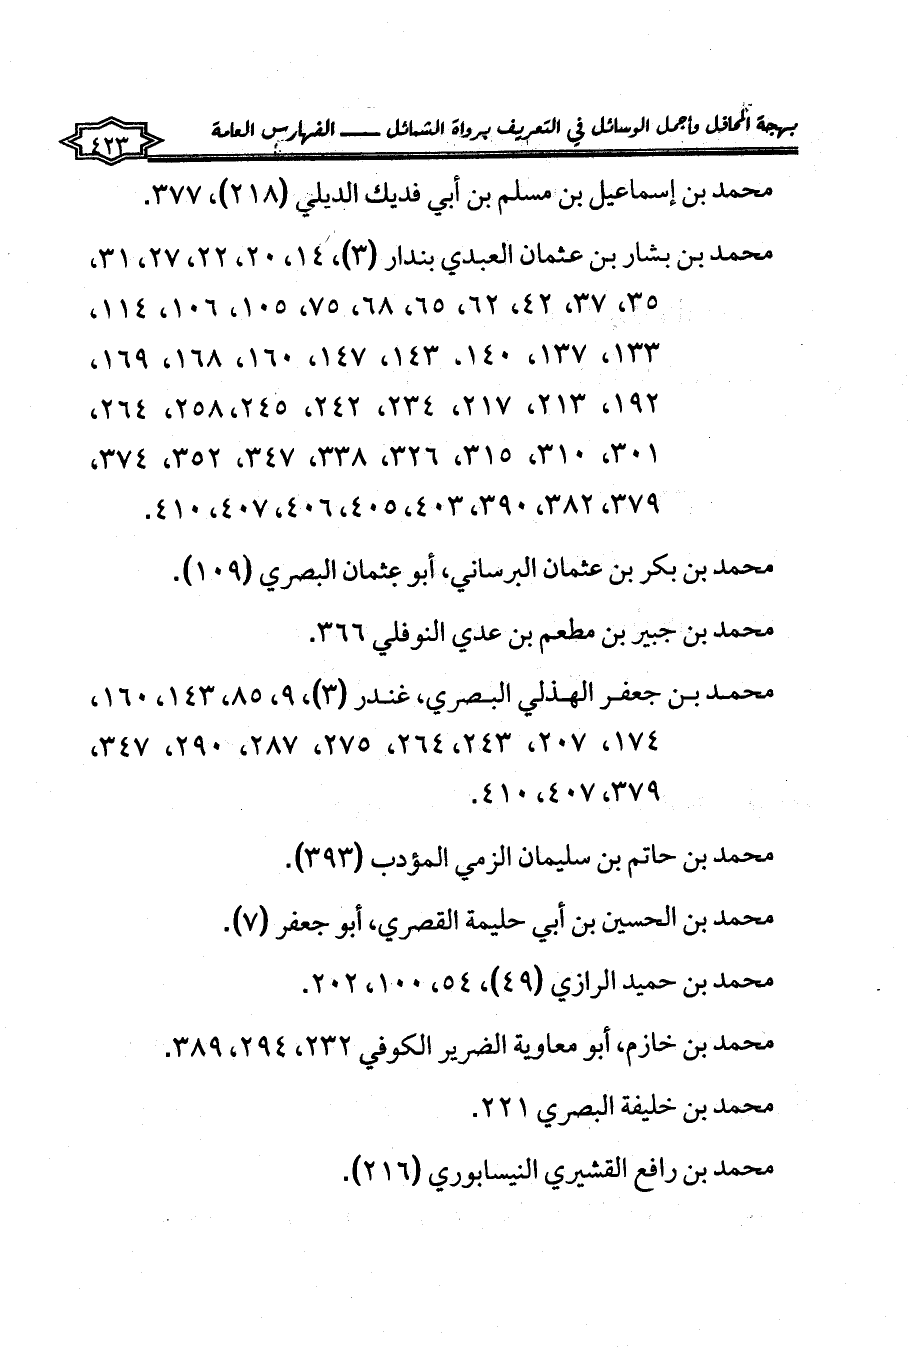 بهجة المحافل وأجمل الوسائل في التعريف برواة الشمائل ــــ الفهارس العامة
٤٢٣
محمد بن إسماعيل بن مسلم بن أبي فديك الديلي (٢١٨)، ٣٧٧.
محمد بن بشار بن عثمان العبدي بندار (٣)، ١٤، ٢٠، ٢٢، ٢٧، ٣١،
٣٥، ٣٧، ٤٢، ٦٢، ٦٥، ٦٨، ٧٥، ١٠٥، ١٠٦، ١١٤،
١٣٣، ١٣٧، ١٤٠. ١٤٣، ١٤٧، ١٦٠، ١٦٨، ١٦٩،
١٩٢، ٢١٣، ٢١٧، ٢٣٤، ٢٤٢، ٢٤٥، ٢٥٨، ٢٦٤،
٣٠١، ٣١٠، ٣١٥، ٣٢٦، ٣٣٨، ٣٤٧، ٣٥٢، ٣٧٤،
٣٧٩، ٣٨٢، ٣٩٠، ٤٠٣، ٤٠٥، ٤٠٦، ٤٠٧، ٤١٠.
محمد بن بكر بن عثمان البرساني، أبو عثمان البصري (١٠٩).
محمد بن جبير بن مطعم بن عدي النوفلي ٣٦٦.
محمد بن جعفر الهذلي البصري، غندر (٣)، ٩، ٨٥، ١٤٣، ١٦٠،
١٧٤، ٢٠٧، ٢٤٣، ٢٦٤، ٢٧٥، ٢٨٧، ٢٩٠، ٣٤٧،
٣٧٩، ٤٠٧، ٤١٠.
محمد بن حاتم بن سليمان الزمي المؤدب (٣٩٣).
محمد بن الحسين بن أبي حليمة القصري، أبو جعفر (٧).
محمد بن حميد الرازي (٤٩)، ٥٤، ١٠٠، ٢٠٢.
محمد بن خازم، أبو معاوية الضرير الكوفي ٢٣٢، ٢٩٤، ٣٨٩.
محمد بن خليفة البصري ٢٢١.
محمد بن رافع القشيري النيسابوري (٢١٦).